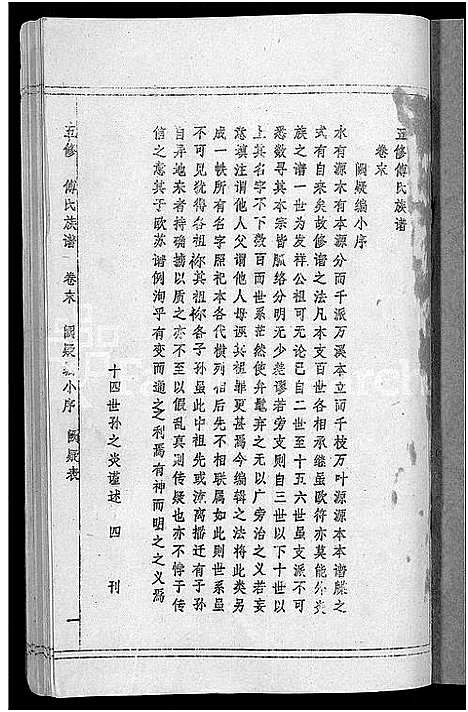 五修傅氏族谱
卷末
阙疑编小序
水有源木有本源分而千派万溪本立而千枝万叶源源本本谱牒之
式有自来矣故修谱之法凡本支百世各相承继虽欧苻亦莫能外炎
族之谱一世为发祥公祖可无论已自二世至十五六世虽支派不可
悉数寻其本宗皆脉络分明无少差谬若旁支则自三世以下十世以
上其名字不下数百而世系茫然使弁髦弃之无以广旁治之义若妄
意填注谓他人父谓他人母诬其祖罪更甚焉今编辑之法将此类另
成一帙所有名字照祀本各代横列祖后先不相联属如此则世系虽
不可见犹得各祖祢其祖祢各子孙虽此中祖先或流离播迁有子孙
自异地来者持确据以质之亦不至以假乱真则传疑也亦不悖于传
信之意其于欧苏谱例洵乎有变而通之之利焉有神而明之之义焉
十四世孙之炎谨述 四 刊
五修 傅氏族谱 卷末 阙疑 小序 阙疑表 一